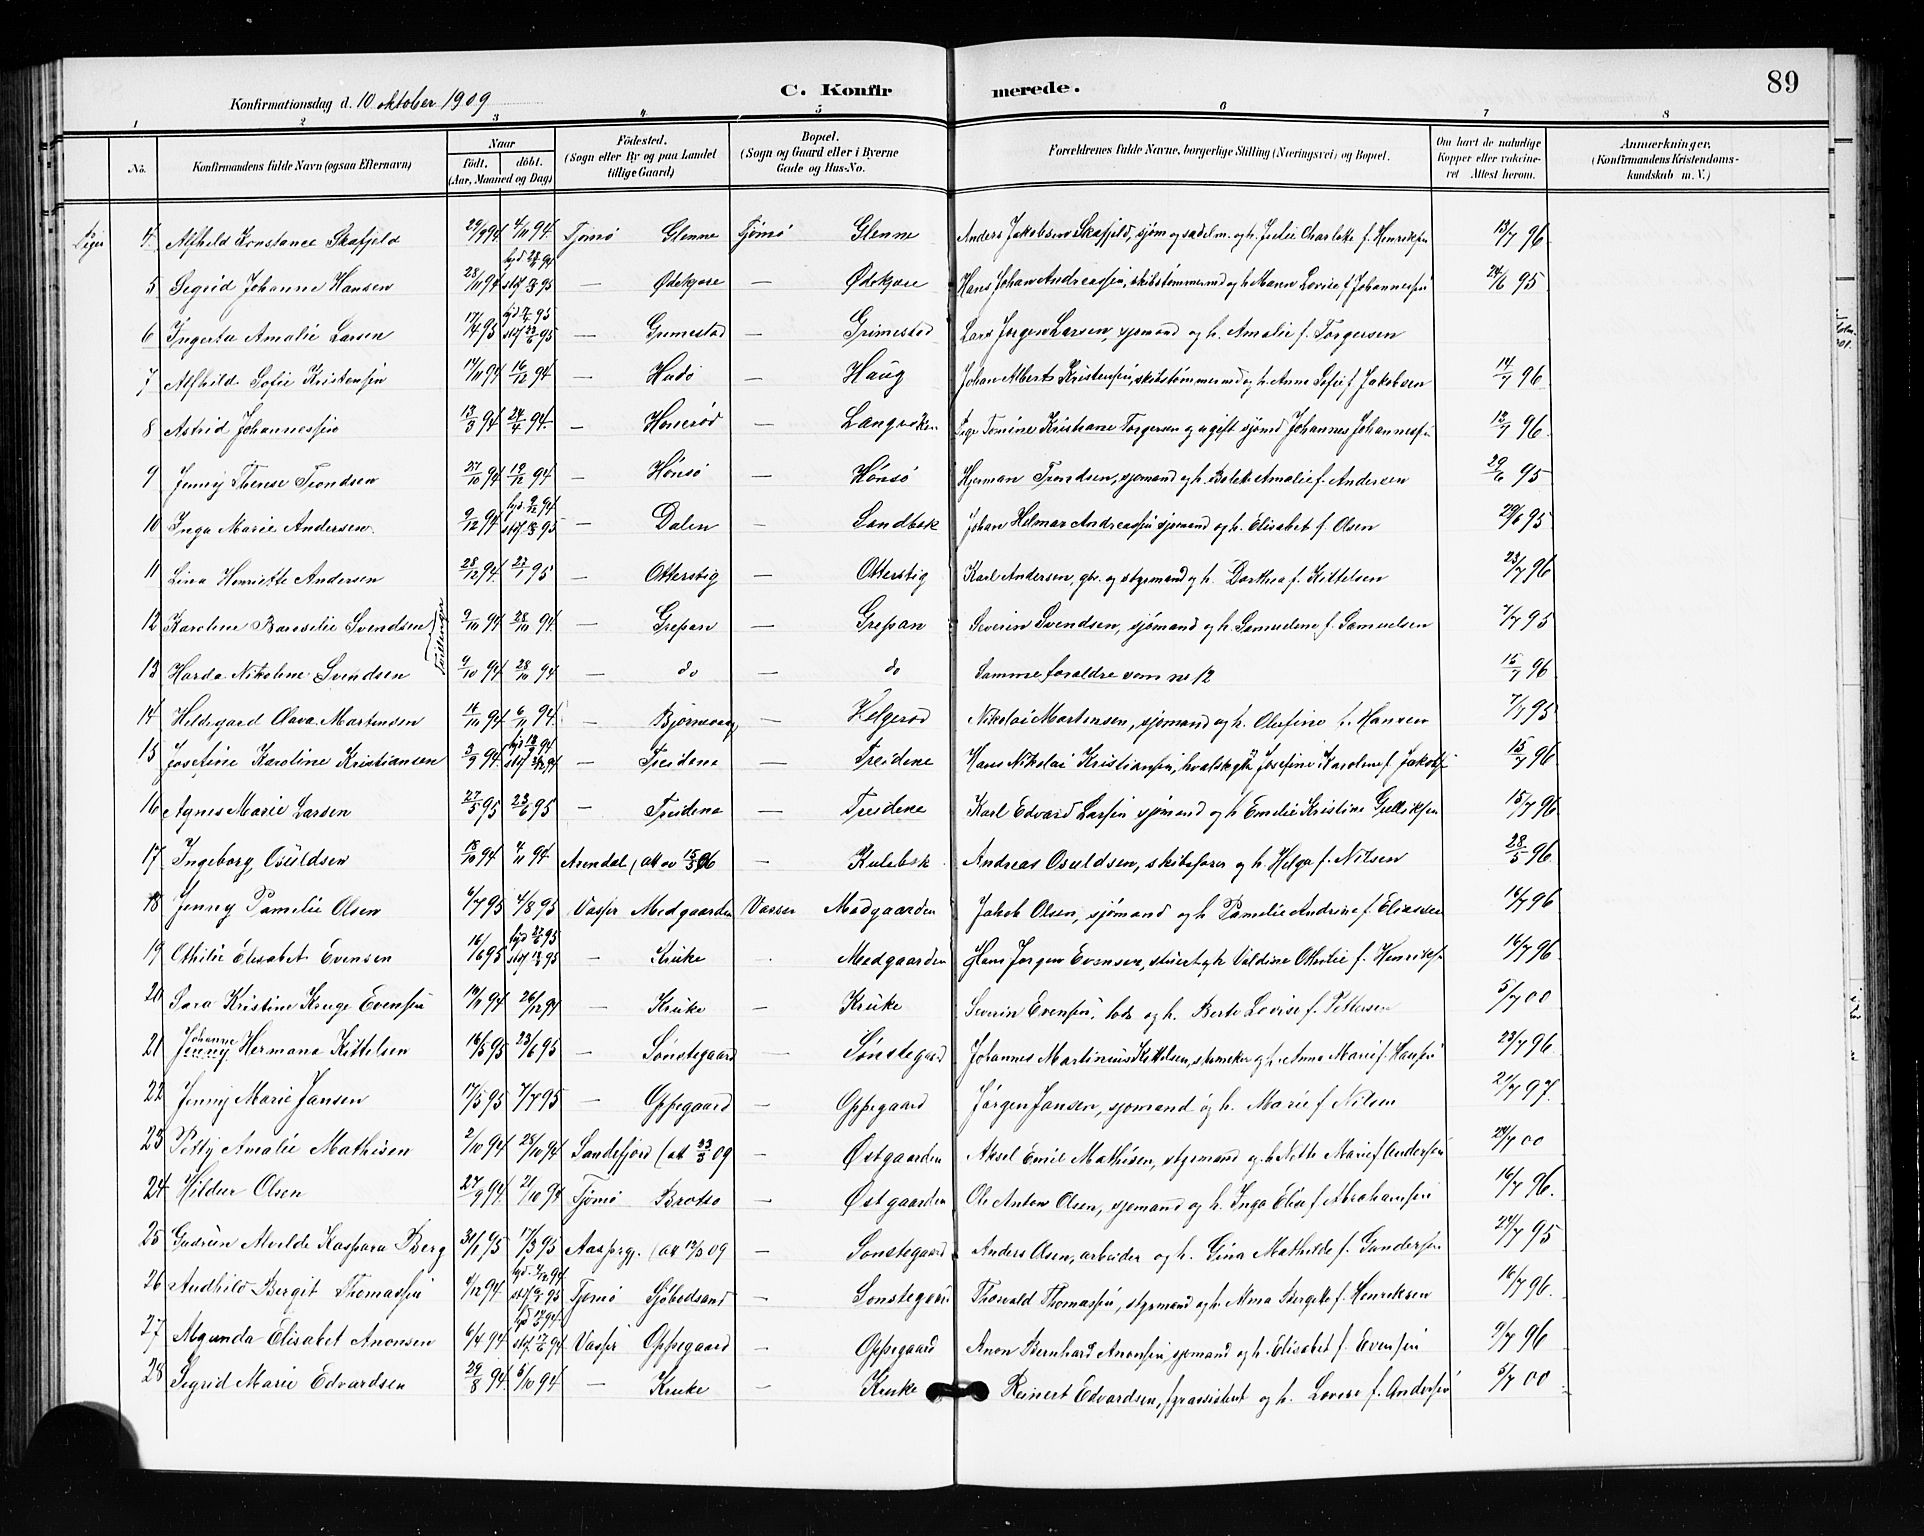 89
Konfirmationsdag d. 10 oktober 1909
C. Konfirmerede.
1 2 3 4 5 6 7 8
No.
Konfirmandens fulde Navn (ogsaa Efternavn)
Naar
født. døbt.
(Aar, Maaned og Dag)
Födested.
(Sogn eller By og paa Landet
tillige Gaard)
Bopæl.
(Sogn og Gaard eller i Byerne
Gade og Hus-No.
Forældrenes fulde Navne, borgerlige Stilling (Næringsvei) og Bopæl.
Om havt de naturlige
Kopper eller vakcine-
ret Attest herom.
Anmærkninger.
(Konfirmandens Kristendoms-
kundskab m. V.)
Piger 4. Alfhild Konstance Skafjeld 29/9 94 4/11 94. Tjømø Glenne Tjømø Glenne Anders Jakobsen Skafjeld, sjøm og h. Julie Charlotte f. Henriksen 13/7 96
5 Sigrid Johanne Hansen 28/11 94 — Ødekjære — Ødekjære Hans Johan Andreassen, skibstømmermd og h Maren Lovise f Johannessen 24/6 95
6 Ingerta Amalie Larsen 17/4 95 — Grimestad — Grimestad Lars Jørgen Larsen, sjømand og h. Amalie f. Torgersen
7 Alfhild Sofie Kristensen 14/11 94 16/12 94 — Hudø — Haug Johan Albert Kristensen, skibstømmermd og h. Anne Sofie f Jakobsen 14/7 96
8 Astrid Johannessen 13/3 94 24/4 94. — Honerød — Langviken Pige Tomine Kristiane Torgersen og ugift sjømd Johannes Johannessen 13/7 96
9 Jenny Therese Trondsen 27/10 94 19/12 94 — Hønsø — Hønsø Hjerman Trondsen, sjømand og h. Bolette Amalie f. Andersen 29/6 95
10 Inga Marie Andersen. 9/12 94 — Dalen — Sandbæk Johan Helmar Andreassen sjømand og h. Elisabet f. Olsen 29/6 95
11 Lina Henriette Andersen 28/12 94 27/1 95 — Otterstig — Otterstig Karl Andersen, gbr. og styrmand og h. Dorthea f. Kittelsen 23/7 96
12 Karoline Bansilie Svendsen Tvillinger 9/10 94 28/10 94. — Grepan — Grepan Severin Svendsen, sjømand og h. Samueline f. Samuelsen 7/7 95
13 Harda Nikoline Svendsen 9/10 94 28/10 94 — do — do Samme forældre som no 12 15/7 96
14 Hildegard Olava Martensen 14/10 94 6/11 94 — Bjørnevaag — Helgerød Nikolai Martensen, sjømand og h. Olefine f. Hansen 7/7 95
15 Josefine Karoline Kristiansen 3/9 94 — Treidene — Treidene Hans Nikolai Kristiansen, hvalskytt Josefine Karoline f Jakobsen 15/7 96
16 Agnes Marie Larsen 27/5 95 23/6 95 — Treidene — Treidene Karl Edvard Larsen sjømand og h Emelie Kristine Gulliksen 15/7 96
17 Ingeborg Osuldsen 15/10 94 4/11 94 Arendal (att av — Kulebæk Andreas Osuldsen, skibsfører og h. Helga f. Nilsen 28/5 96
18 Jenny Pamelie Olsen 6/7 95 4/8 95 Vasser Medgaarden Vasser Medgaarden Jakob Olsen, sjømand og h Pamelie Andrine f. Eliassen 16/7 96
19 Othilie Elisabet Evensen 16/1 95 — Kruke Medgaarden Hans Jørgen Evensen, stuert og h Valdine Othilie f. Henriksen 16/7 96
20 Sara Kristine Kruge Evensen 26/12 94 — Kruke — Kruke Severin Evensen, lods og h. Berte Lovise f. Pettersen 5/7 00
21 Johanne Jenny Hermana Kittelsen 16/5 95 23/6 95 — Sønstegaard — Sønstegaard Johannes Martinius Kittelsen, og h. Anne Marie f. Hansen 23/7 96
22 Jenny Marie Jansen 17/5 95 7/7 95 — Oppegaard — Oppegaard Jørgen Jansen, sjømand og h. Marie f Nilsen 21/7 97.
23 Petty Amalie Mathisen 2/10 94 28/10 94 Sandefjord (att 23/3 09 — Østgaarden Aksel Emil Mathisen, styrmand og h Nette Marie f Andersen 24/7 00
24 Hildur Olsen 27/9 94 21/10 94 Tjømø Brotsø — Østgaarden Ole Anton Olsen, sjømand og h. Inga Elisa f Abrahamsen 16/7 96.
25 Gudrun Alvelde Kaspara Berg 31/1 95 17/3 95 — Sønstegaard Anders Olsen, arbeider og h. Gina Mathilde f. Gundersen 24/7 95
26 Audhild Bergit Thomassen 4/12 94 Tjømø Sjøbodsand — Sønstegaard Thorvald Thomassen, styrmand og h. Alma Bergitte f. Henriksen 16/7 96.
27 Algunda Elisabet Anonsen 6/4 94 Vasser Oppegaard — Oppegaard Anon Bernhard Anonsen sjømand og h. Elisabet f. Evensen 9/7 96
28 Sigrid Marie Edvardsen 29/8 94. 5/10 94 — Kruke — Kruke Reinert Edvardsen, fyrassistent og h. Lovise f. Andersen 5/7 00